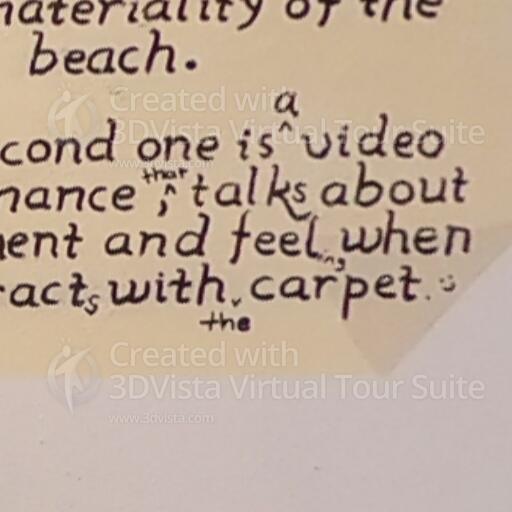 materiality of the
beach.
cond one is a video
mance, that talks about
ent and feeling, when
racts with the carpet.
Created with
3DVista Virtual Tour Suite
www.3dvista.com
Created with
3DVista Virtual Tour Suite
www.3dvista.com